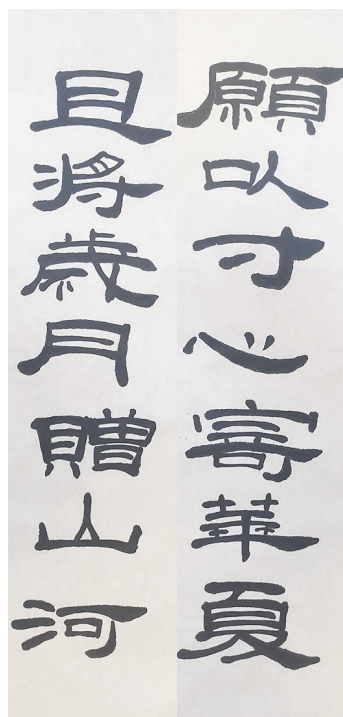 願以寸心寄華夏
且將歲月贈山河